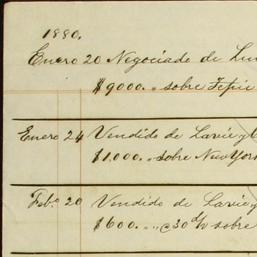 1880.
Enero 20 Negociado de
$9000. „ sobre Tepic
Enero 24 Vendido de
$1.000. „ sobre New York
Feb.o 20 Vendido de
$600. „ c 30 d/v sobre